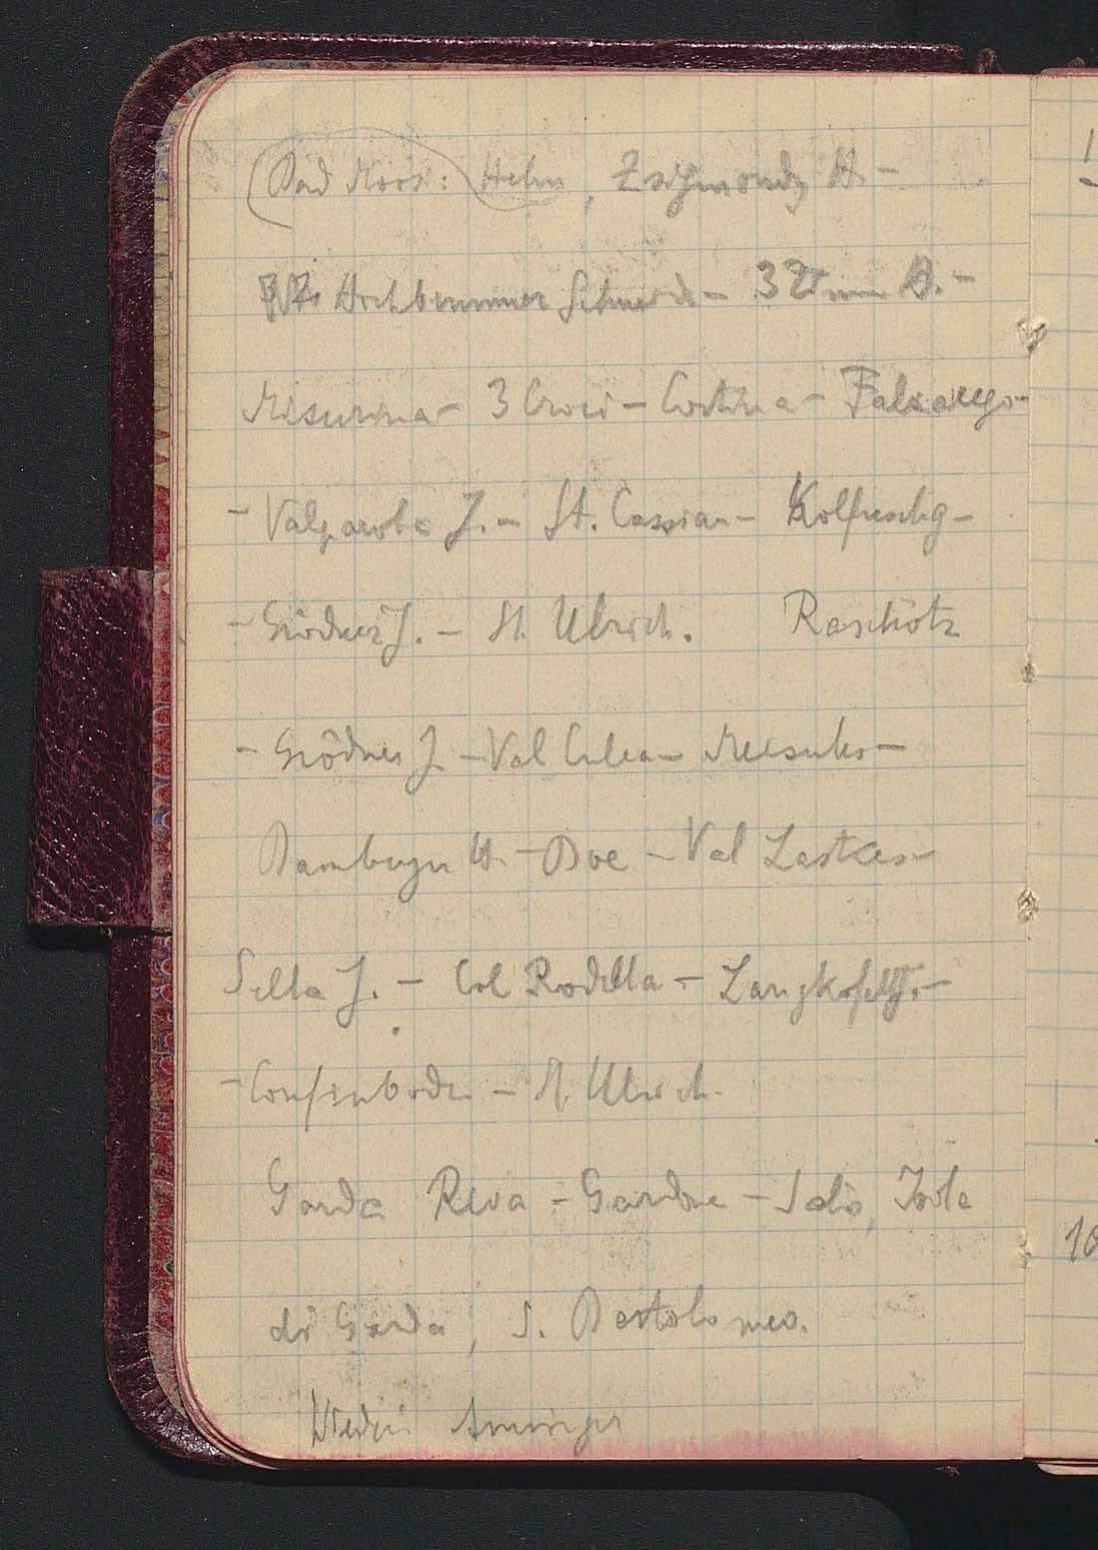 Bad Moos: Helm, Zsigmondy H. -
Hochbrunner Schneide - 3 Zinnen H. -
Misurina - 3 Croci - Cortina - Falzarego -
- Valparola J. - St. Cassian - Kolfuschg -
- Grödner J. - St. Ulrich. Raschötz
- Grödner J - Val Culea - Meisules -
Bamberger H. - Boe - Val Lasties -
Sella J. - Col Rodella - Langkofelj. -
- Confinboden - St. Ulrich.
Garda Riva - Gardone - Salo, Isola
di Garda, S. Bartolomeo.